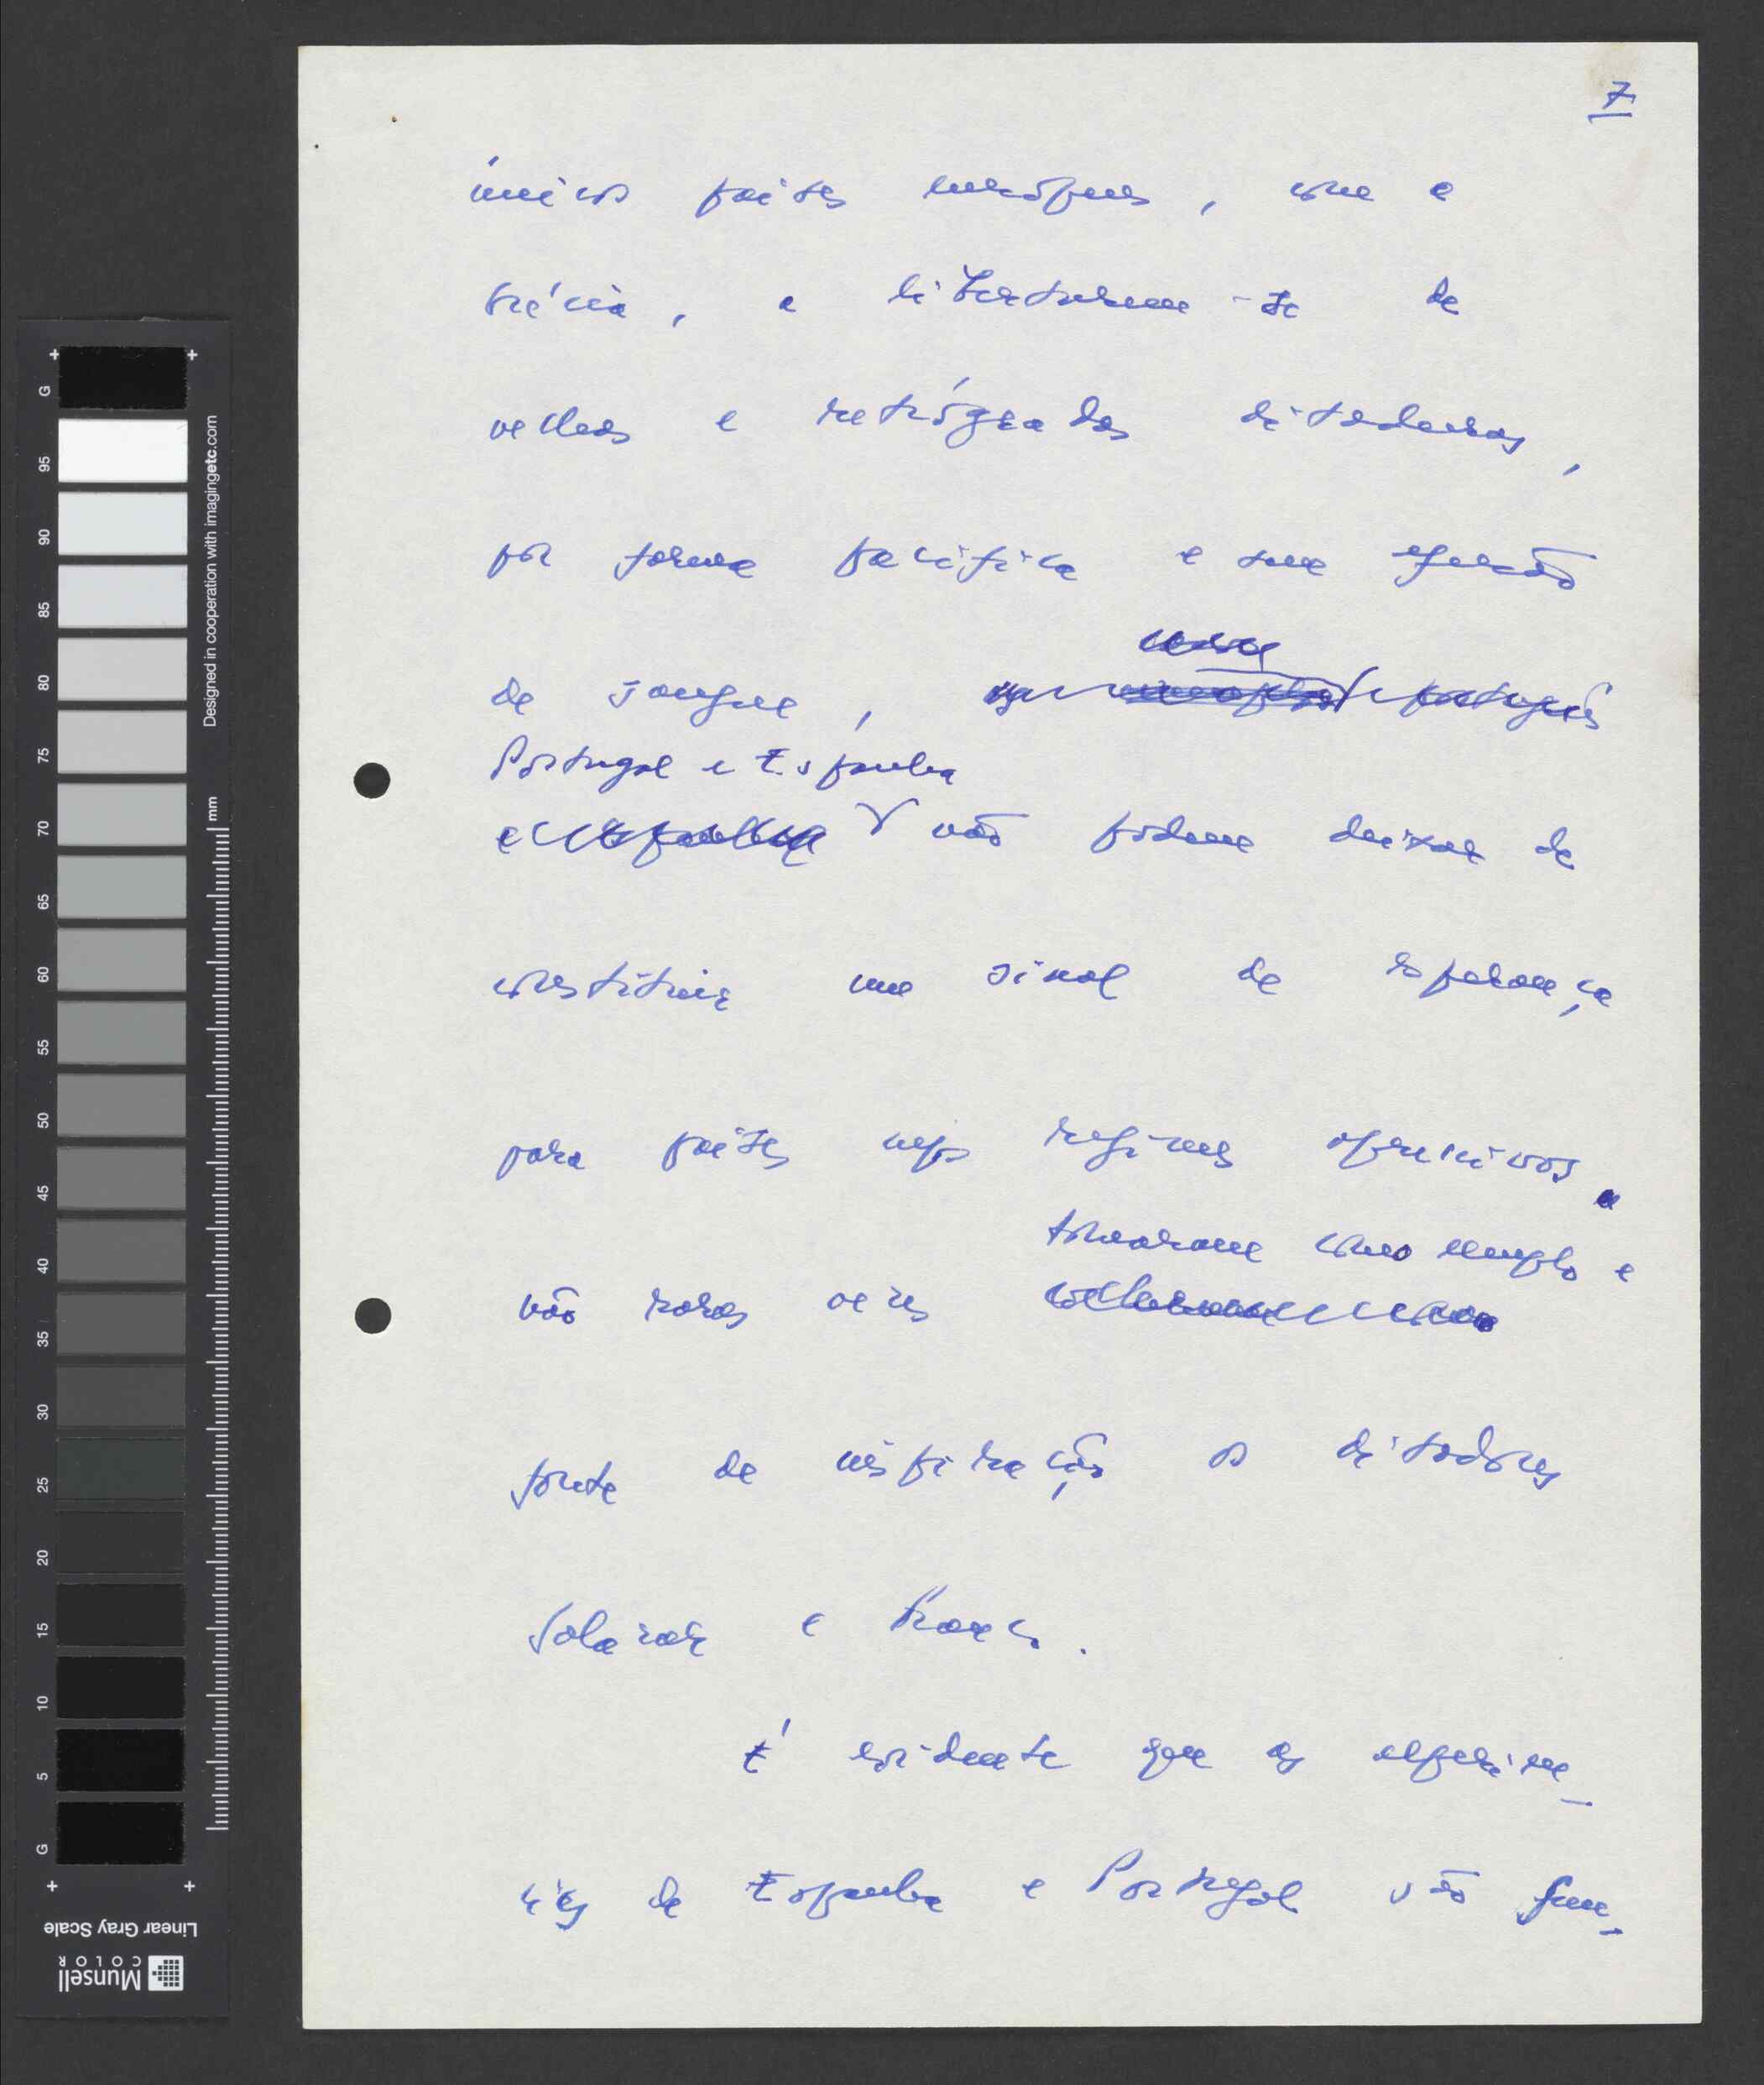 7
únicos países europeus, com a
Grécia, a libertarem-se de
velhas e retrógradas ditaduras,
por forma pacífica e sem efusão
de sangue,
Portugal e Espanha
não podem deixar de
constituir um sinal de esperança
para países cujos regimes opressivos
tomaram como exemplo e
não raras vezes
fonte de inspiração os ditadores
Salazar e Franco.
É evidente que as experiên-
cias de Espanha e Portugal são
G
95
90
85
80
75
70
65
60
55
50
45
40
35
30
25
20
15
10
5
G
mm
Designed in cooperation with imagingetc.com
Linear Gray Scale
Munsell
COLOR